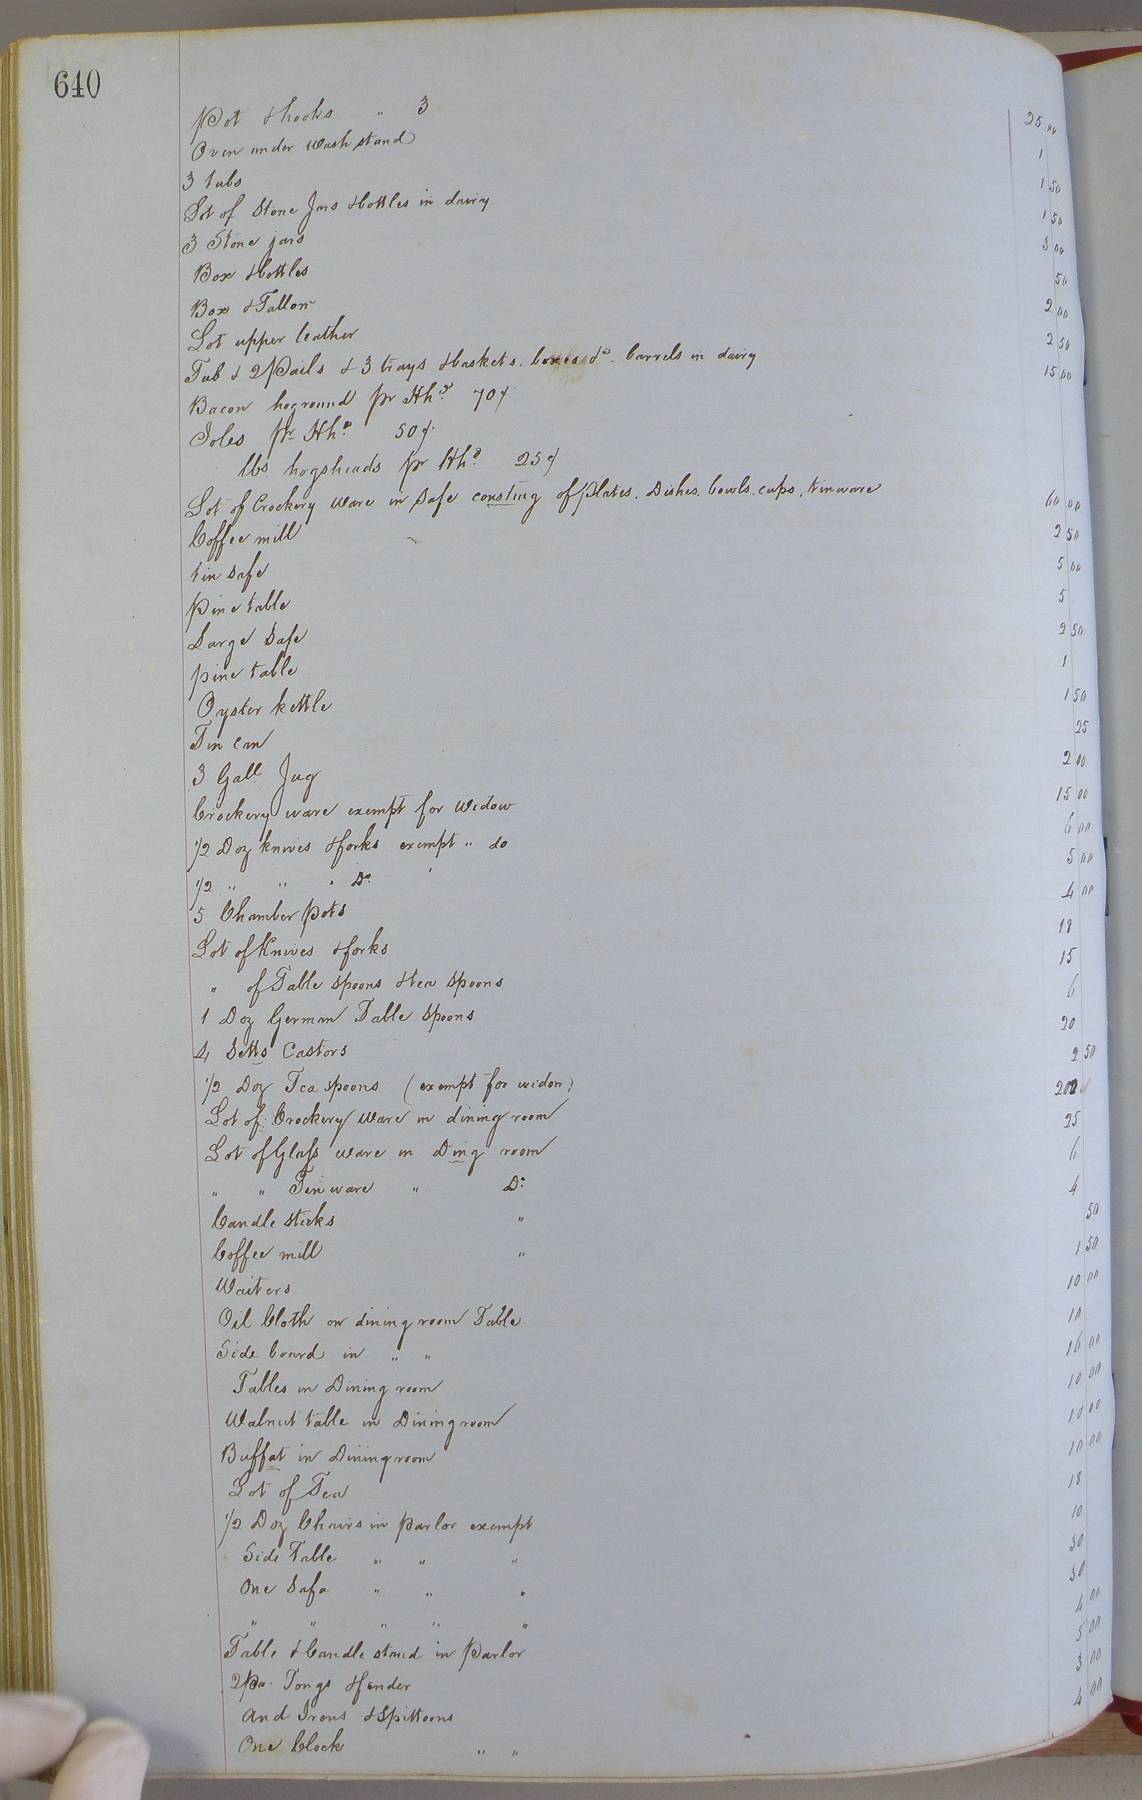 640
Pot & hooks " 3 25 00
Oven under wash stand 1
3 tubs 1 50
Lot of Stone Jars & bottles in dairy 1 50
3 Stone jars 3 00
Box & bottles 50
Box & Tallow 2 00
Lot upper leather 2 50
Tub & 2 Pails & 3 trays & baskets. boxes &c. barrels in dairy 15 00
Bacon hoground pr Hhd. 70¢
Joles pr Hhd. 50¢
lbs hogsheads pr Hhd. 25¢
Lot of Crockery ware in Safe consting of plates. Dishes. bowls. cups. tinware 60 00
Coffee mill 2 50
tin safe 5 00
Pine table 5
Large Safe 2 50
pine table 1
Oyster kettle 1 50
Tin can 25
3 Gall Jug 2 00
Crockery ware exempt for widow 15 00
1/2 Doz knives & forks exempt " do 6 00
1/2 " " " Do. ' 5 00
5 Chamber pots 4 00
Lot of Knives & forks 18
" of Table spoons & tea spoons 15
1 Doz German Table spoons 6
4 Setts Castors 20
1/2 Doz Tea spoons (exempt for widow) 2 50
Lot of Crockery Ware in dining room 200
Lot of Glass ware in Ding room 25
" " Tin ware " Do: 6
Candle sticks " 4
Coffee mill " 50
Waiters 1 50
Oil Cloth on dining room Table 10 00
Side board in " " 10
Tables in Dining room 16 00
Walnut table in Dining room 10 00
Buffat in Dining room 10 00
Lot of Tea 10 00
1/2 Doz Chairs in Parlor exempt 18
Side Table " " " 10
One Sofa " " " 30
" " " " " 30
Table & Candle stand in Parlor 4 00
2 Pr. Tongs & fender 5 00
And Irons & Spittoons 3 00
One Clock " " 4 00